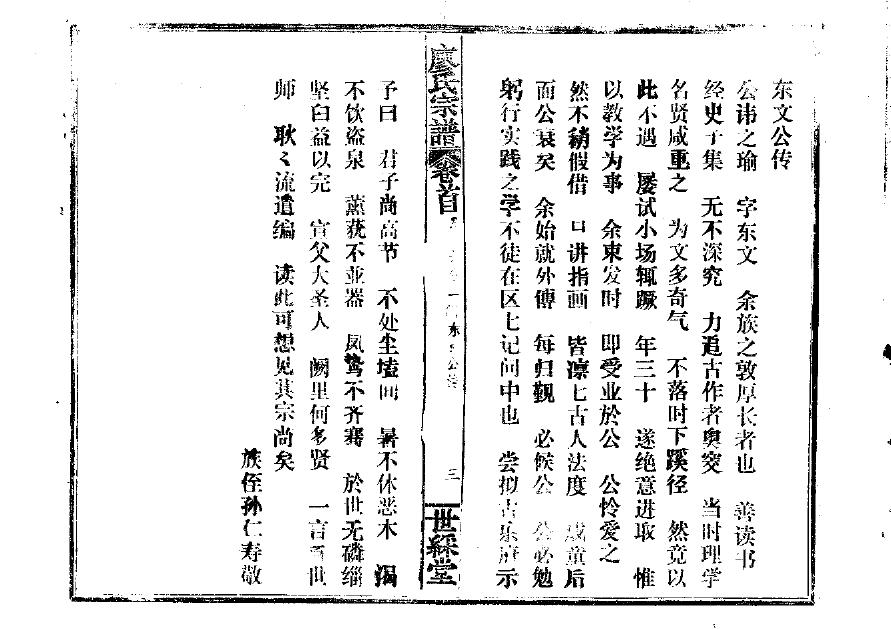 东文公传
公讳之瑜 字东文 余族之敦厚长者也 善读书
经史子集 无不深究 力追古作者奥窔 当时理学
名贤咸重之 为文多奇气 不落时下蹊径 然竟以
此不遇 屡试小场辄蹶 年三十 遂绝意进取 惟
以教学为事 余束发时 即受业於公 公怜爱之
然不稍假借 口讲指画 皆凛七古人法度 成童后
而公衰矣 余始就外傅 每归觐 必候公 公必勉
躬行实践之学不徒在区七记问中也 尝拟古乐府示
廖氏宗譜 卷首
东 公
三
世綵堂
予曰 君子尚高节 不处尘壒间 暑不休恶木 渴
不饮盗泉 薰莸不並器 凤鸷不齐骞 於世无磷缁
坚白益以完 宣父大圣人 阙里何多贤 一言 世
师 耿々流遗编 读此可想见其宗尚矣
族侄孙仁寿敬